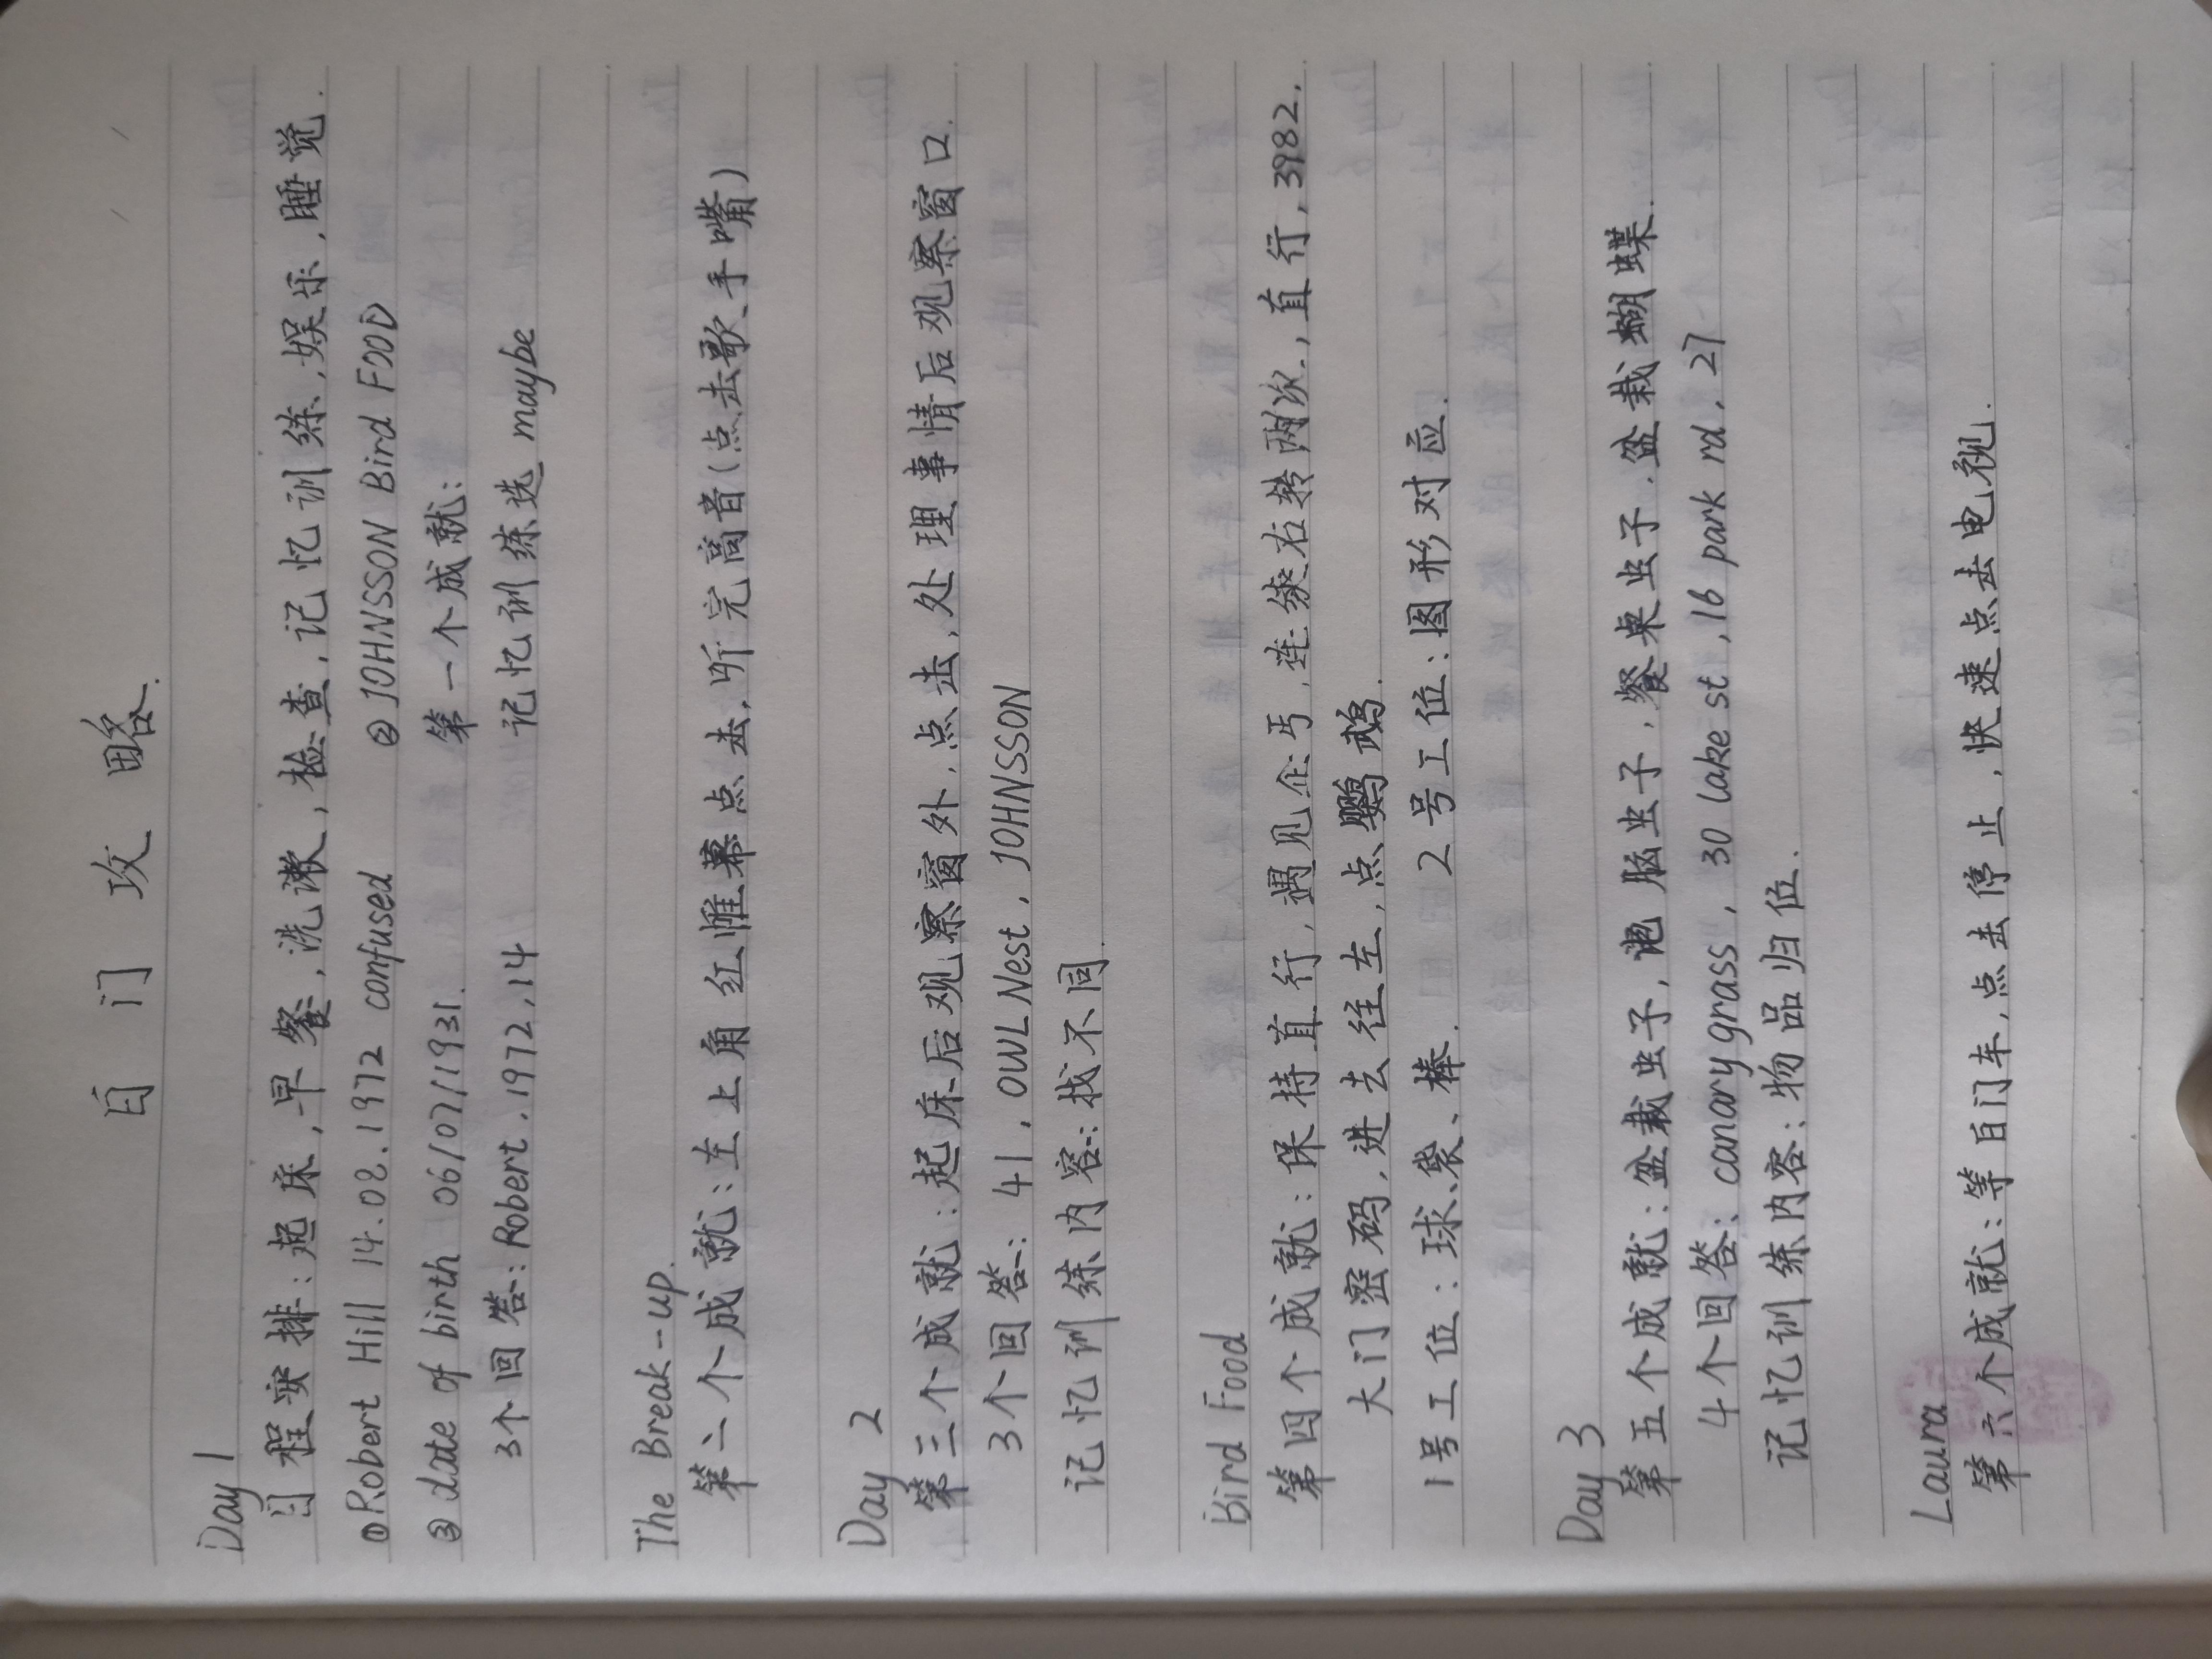 白门攻略.
Day 1
日程安排:起床,早餐,洗漱,检查,记忆训练,娱乐,睡觉.
①Robert Hill 14.08.1972 confused ②JOHNSSON Bird FOOD
③date of birth 06/07/1931. 第一个成就:
3个回答:Robert.1972,14 记忆训练选 maybe
The Break-up.
第二个成就:左上角红帷幕点击,听完高音(点击歌手嘴)
Day 2
第三个成就:起床后观察窗外,点击,处理事情后观察窗口.
3个回答:41,OWLNest,JOHNSSON
记忆训练内容:找不同.
Bird Food
第四个成就:保持直行,遇见企丐,连续右转两次,直行,3982.
大门密码,进去往左,点鹦鹉.
1号工位:球、袋、棒. 2号工位:图形对应.
Day 3
第五个成就:盆栽虫子,电脑虫子,餐桌虫子,盆栽蝴蝶.
4个回答:canary grass,30 lake st,16 park rd,27
记忆训练内容:物品归位.
Laura
第六个成就:等白门车,点击停止,快速点击电视.